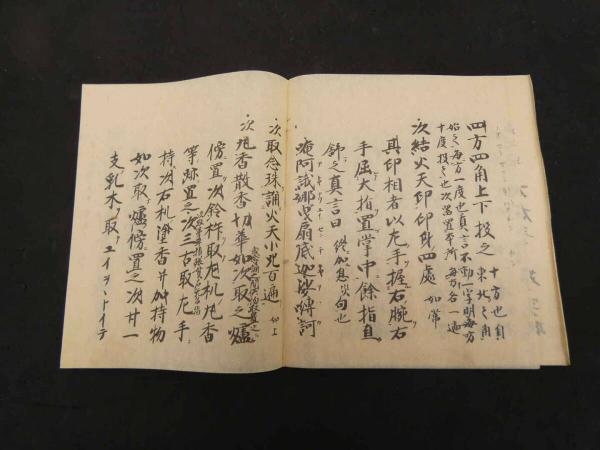 四方四角上下投之 十方也自東北之角
始之毎方一度也真言不動一字明毎方
十度投之也次器置本所 毎方各一遍
次結火天印印身四處 如常
其印相者以左手握右腕右
手屈大指置掌中餘指直
舒之真言曰 終加息災句也
唵阿哦娜曳扇底迦娑嚩訶
次取念珠誦火天小咒百遍 如上
次丸香散香切華如次取之爐
傍置次鈴杵取左机丸香
等跡置之次三古取左手
持次右机塗香并加持物
如次取爐傍置之次廿一
支乳木取エイヲトイテ